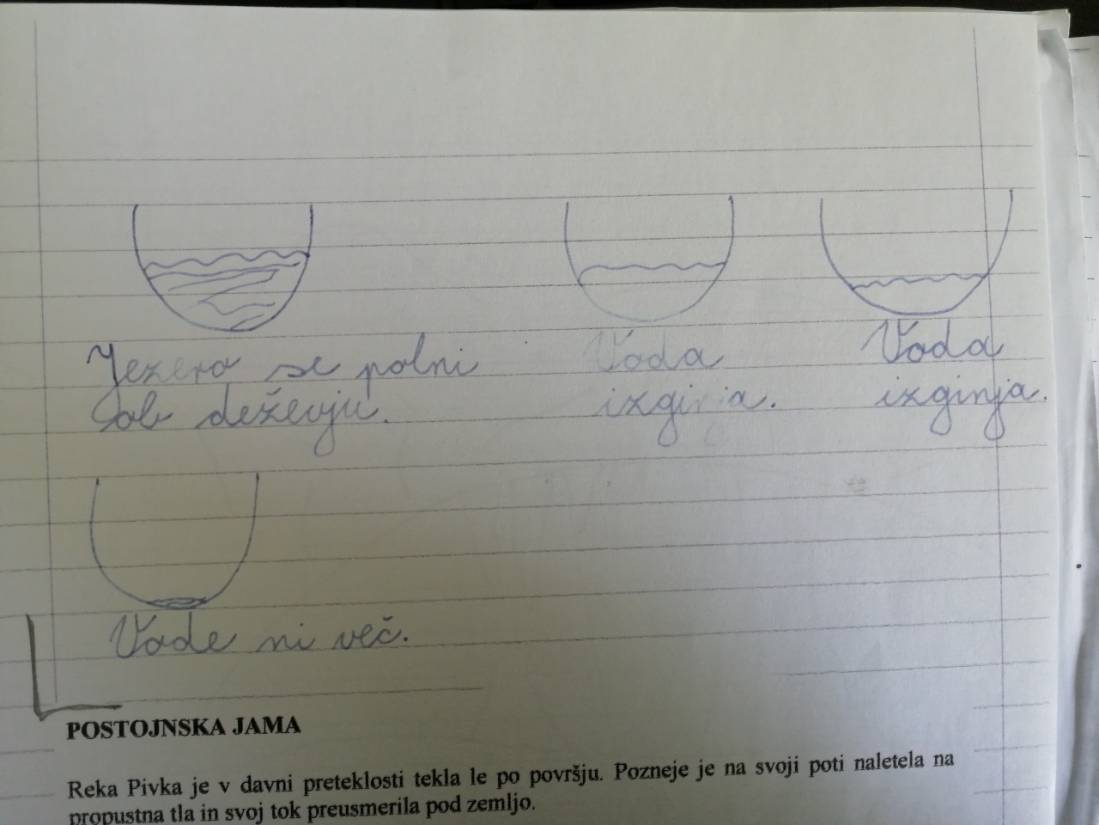 Jezero se polni
ob deževju.
Voda
izginja.
Voda
izginja.
Vode ni več.
POSTOJNSKA JAMA
Reka Pivka je v davni preteklosti tekla le po površju. Pozneje je na svoji poti naletela na
propustna tla in svoj tok preusmerila pod zemljo.